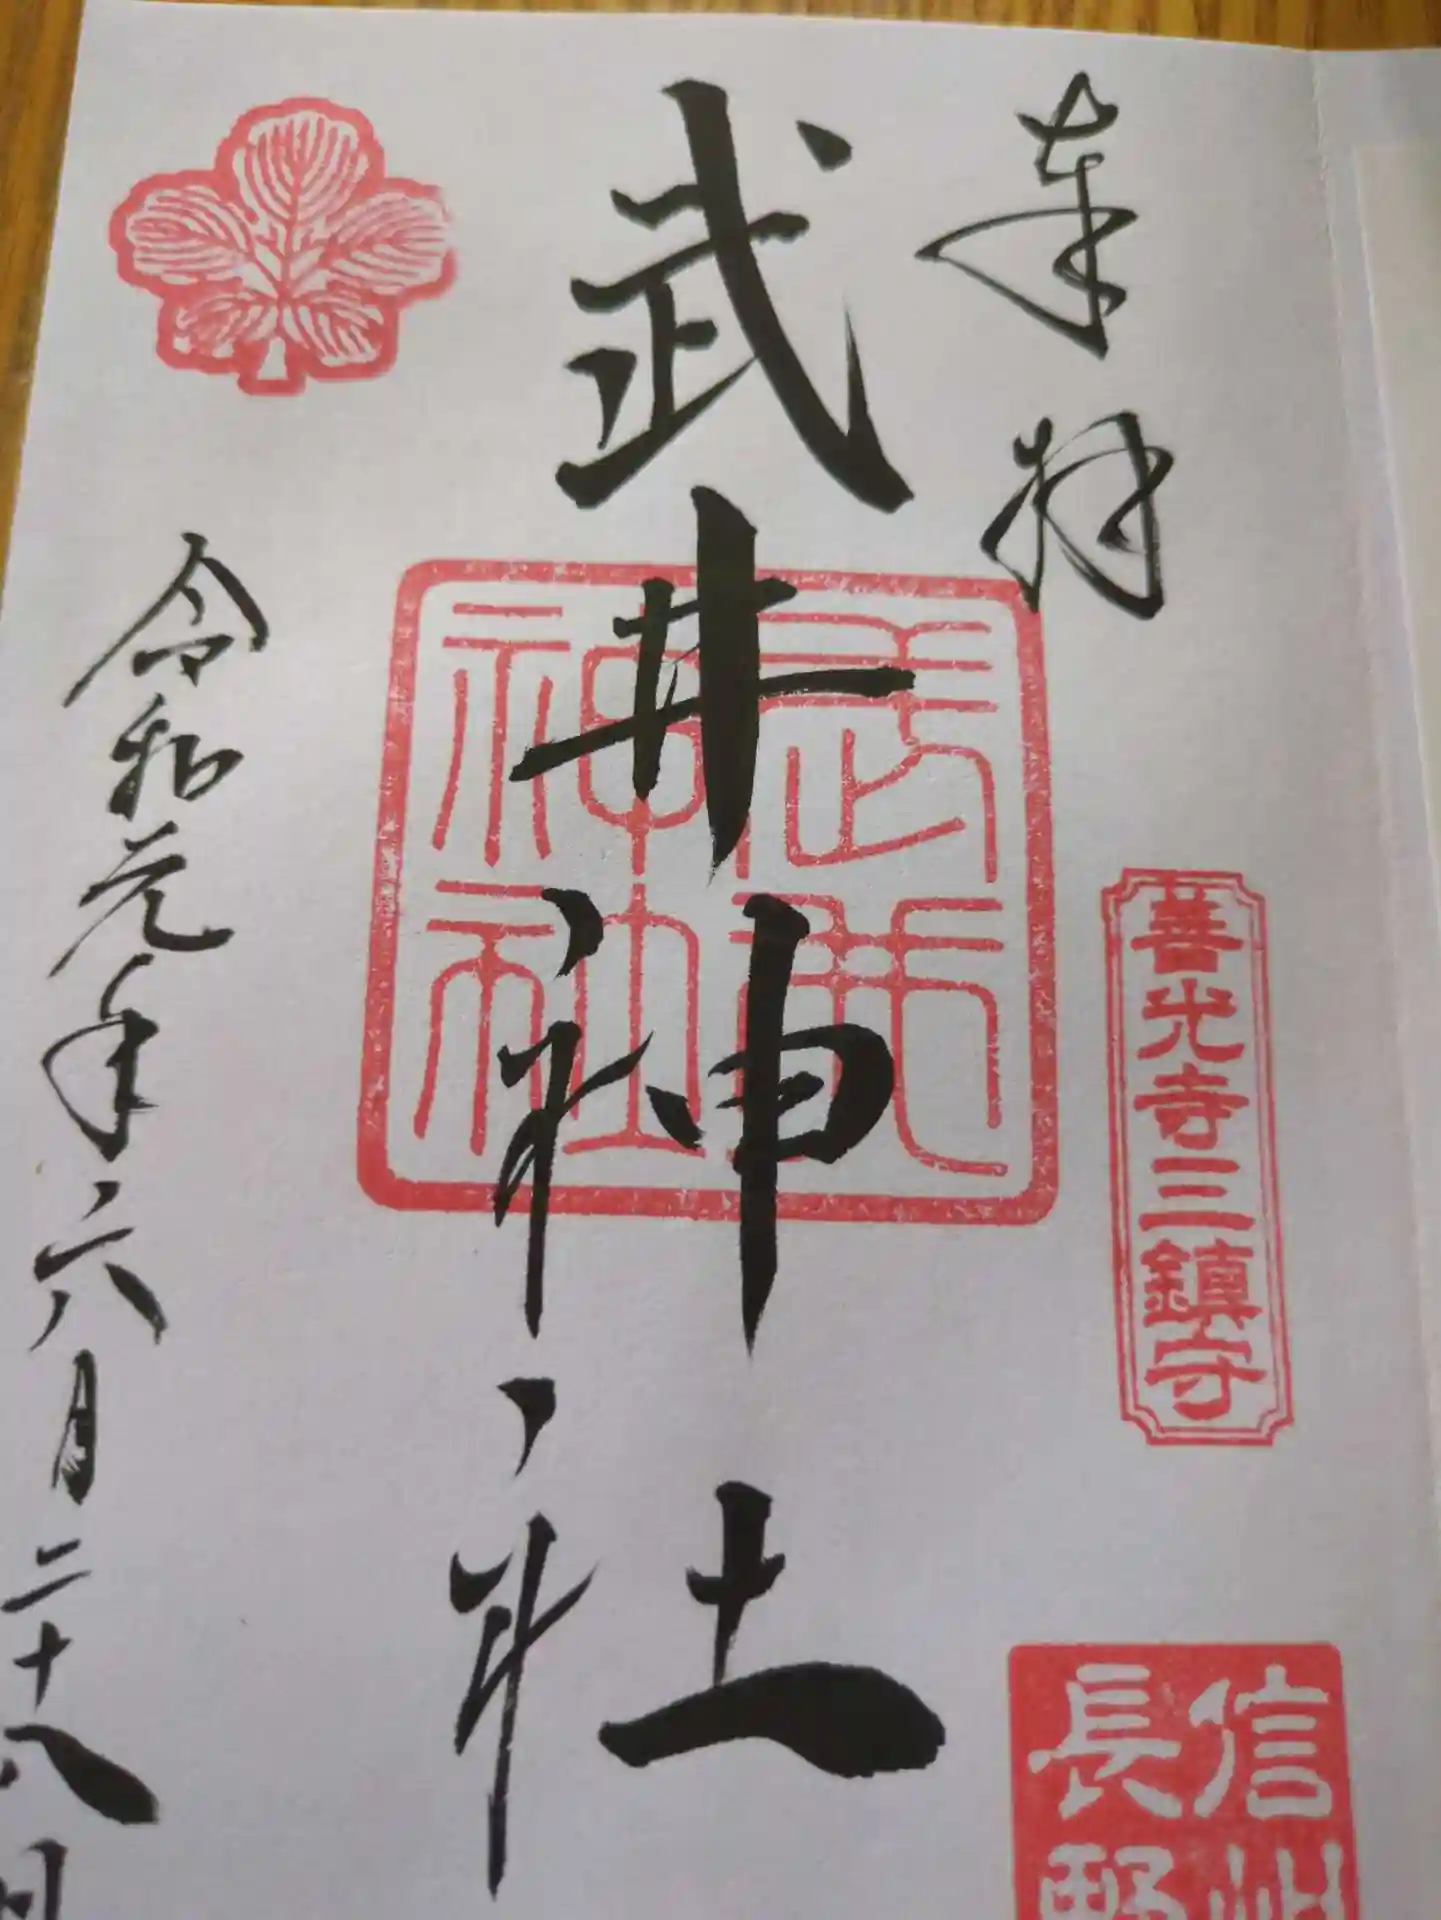 奉拝
善光寺三鎮守
信州
長野
武井神社
武井
神社
令和元年六月二十八日